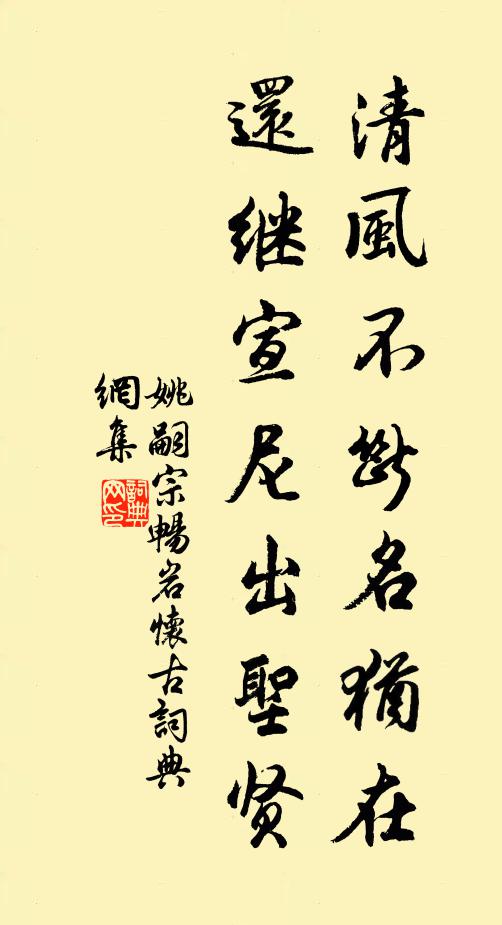 清風不斷名猶在
還継宣尼出聖贤
姚嗣宗暢岩懷古詞典
網集
詞典
网印